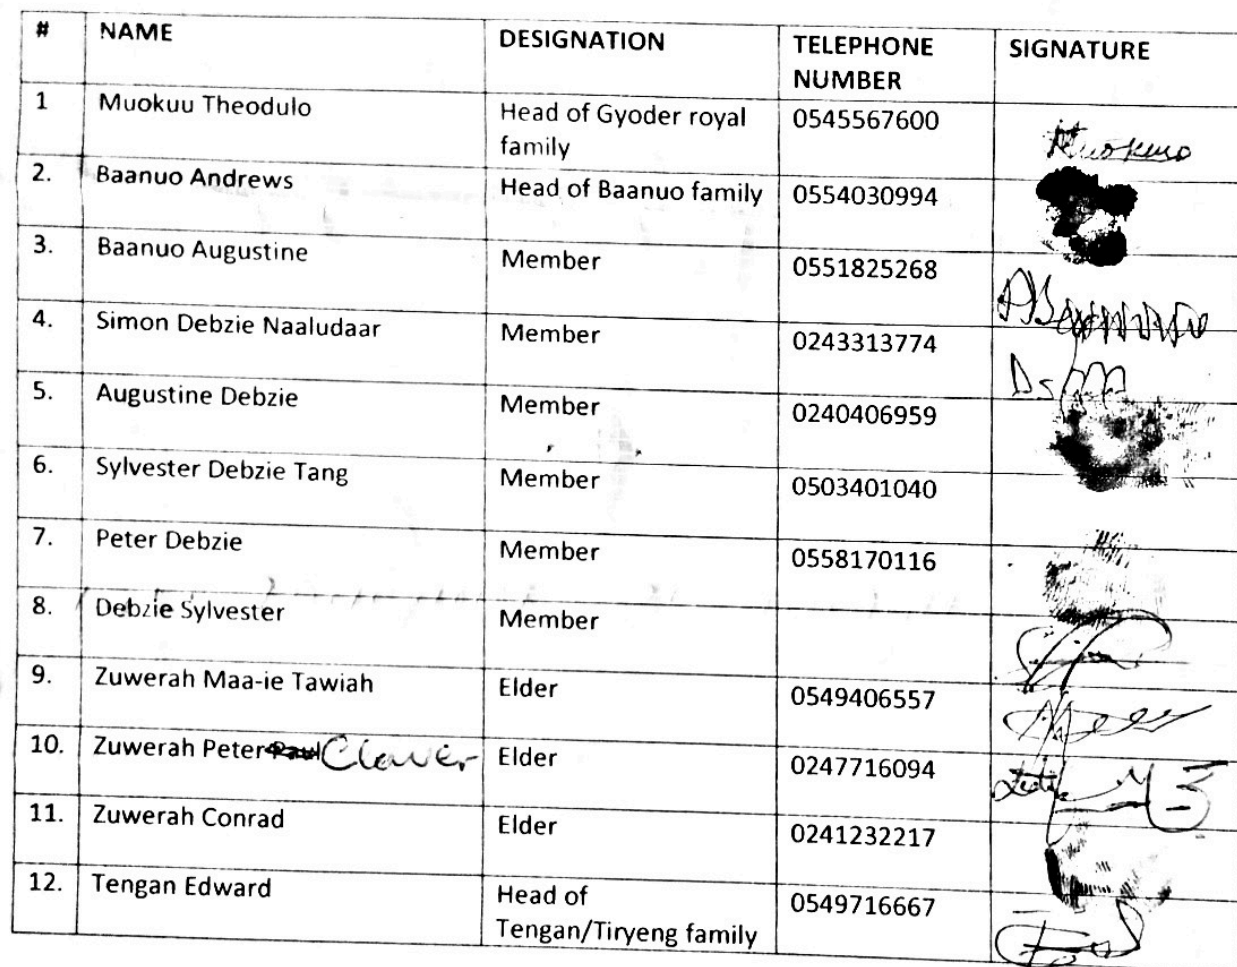 # NAME DESIGNATION TELEPHONE NUMBER SIGNATURE
1 Muokuu Theodulo Head of Gyoder royal family 0545567600 Muokuu
2. Baanuo Andrews Head of Baanuo family 0554030994
3. Baanuo Augustine Member 0551825268
4. Simon Debzie Naaludaar Member 0243313774
5. Augustine Debzie Member 0240406959
6. Sylvester Debzie Tang Member 0503401040
7. Peter Debzie Member 0558170116
8. Debzie Sylvester Member
9. Zuwerah Maa-ie Tawiah Elder 0549406557
10. Zuwerah Peter Paul Claver Elder 0247716094
11. Zuwerah Conrad Elder 0241232217
12. Tengan Edward Head of Tengan/Tiryeng family 0549716667